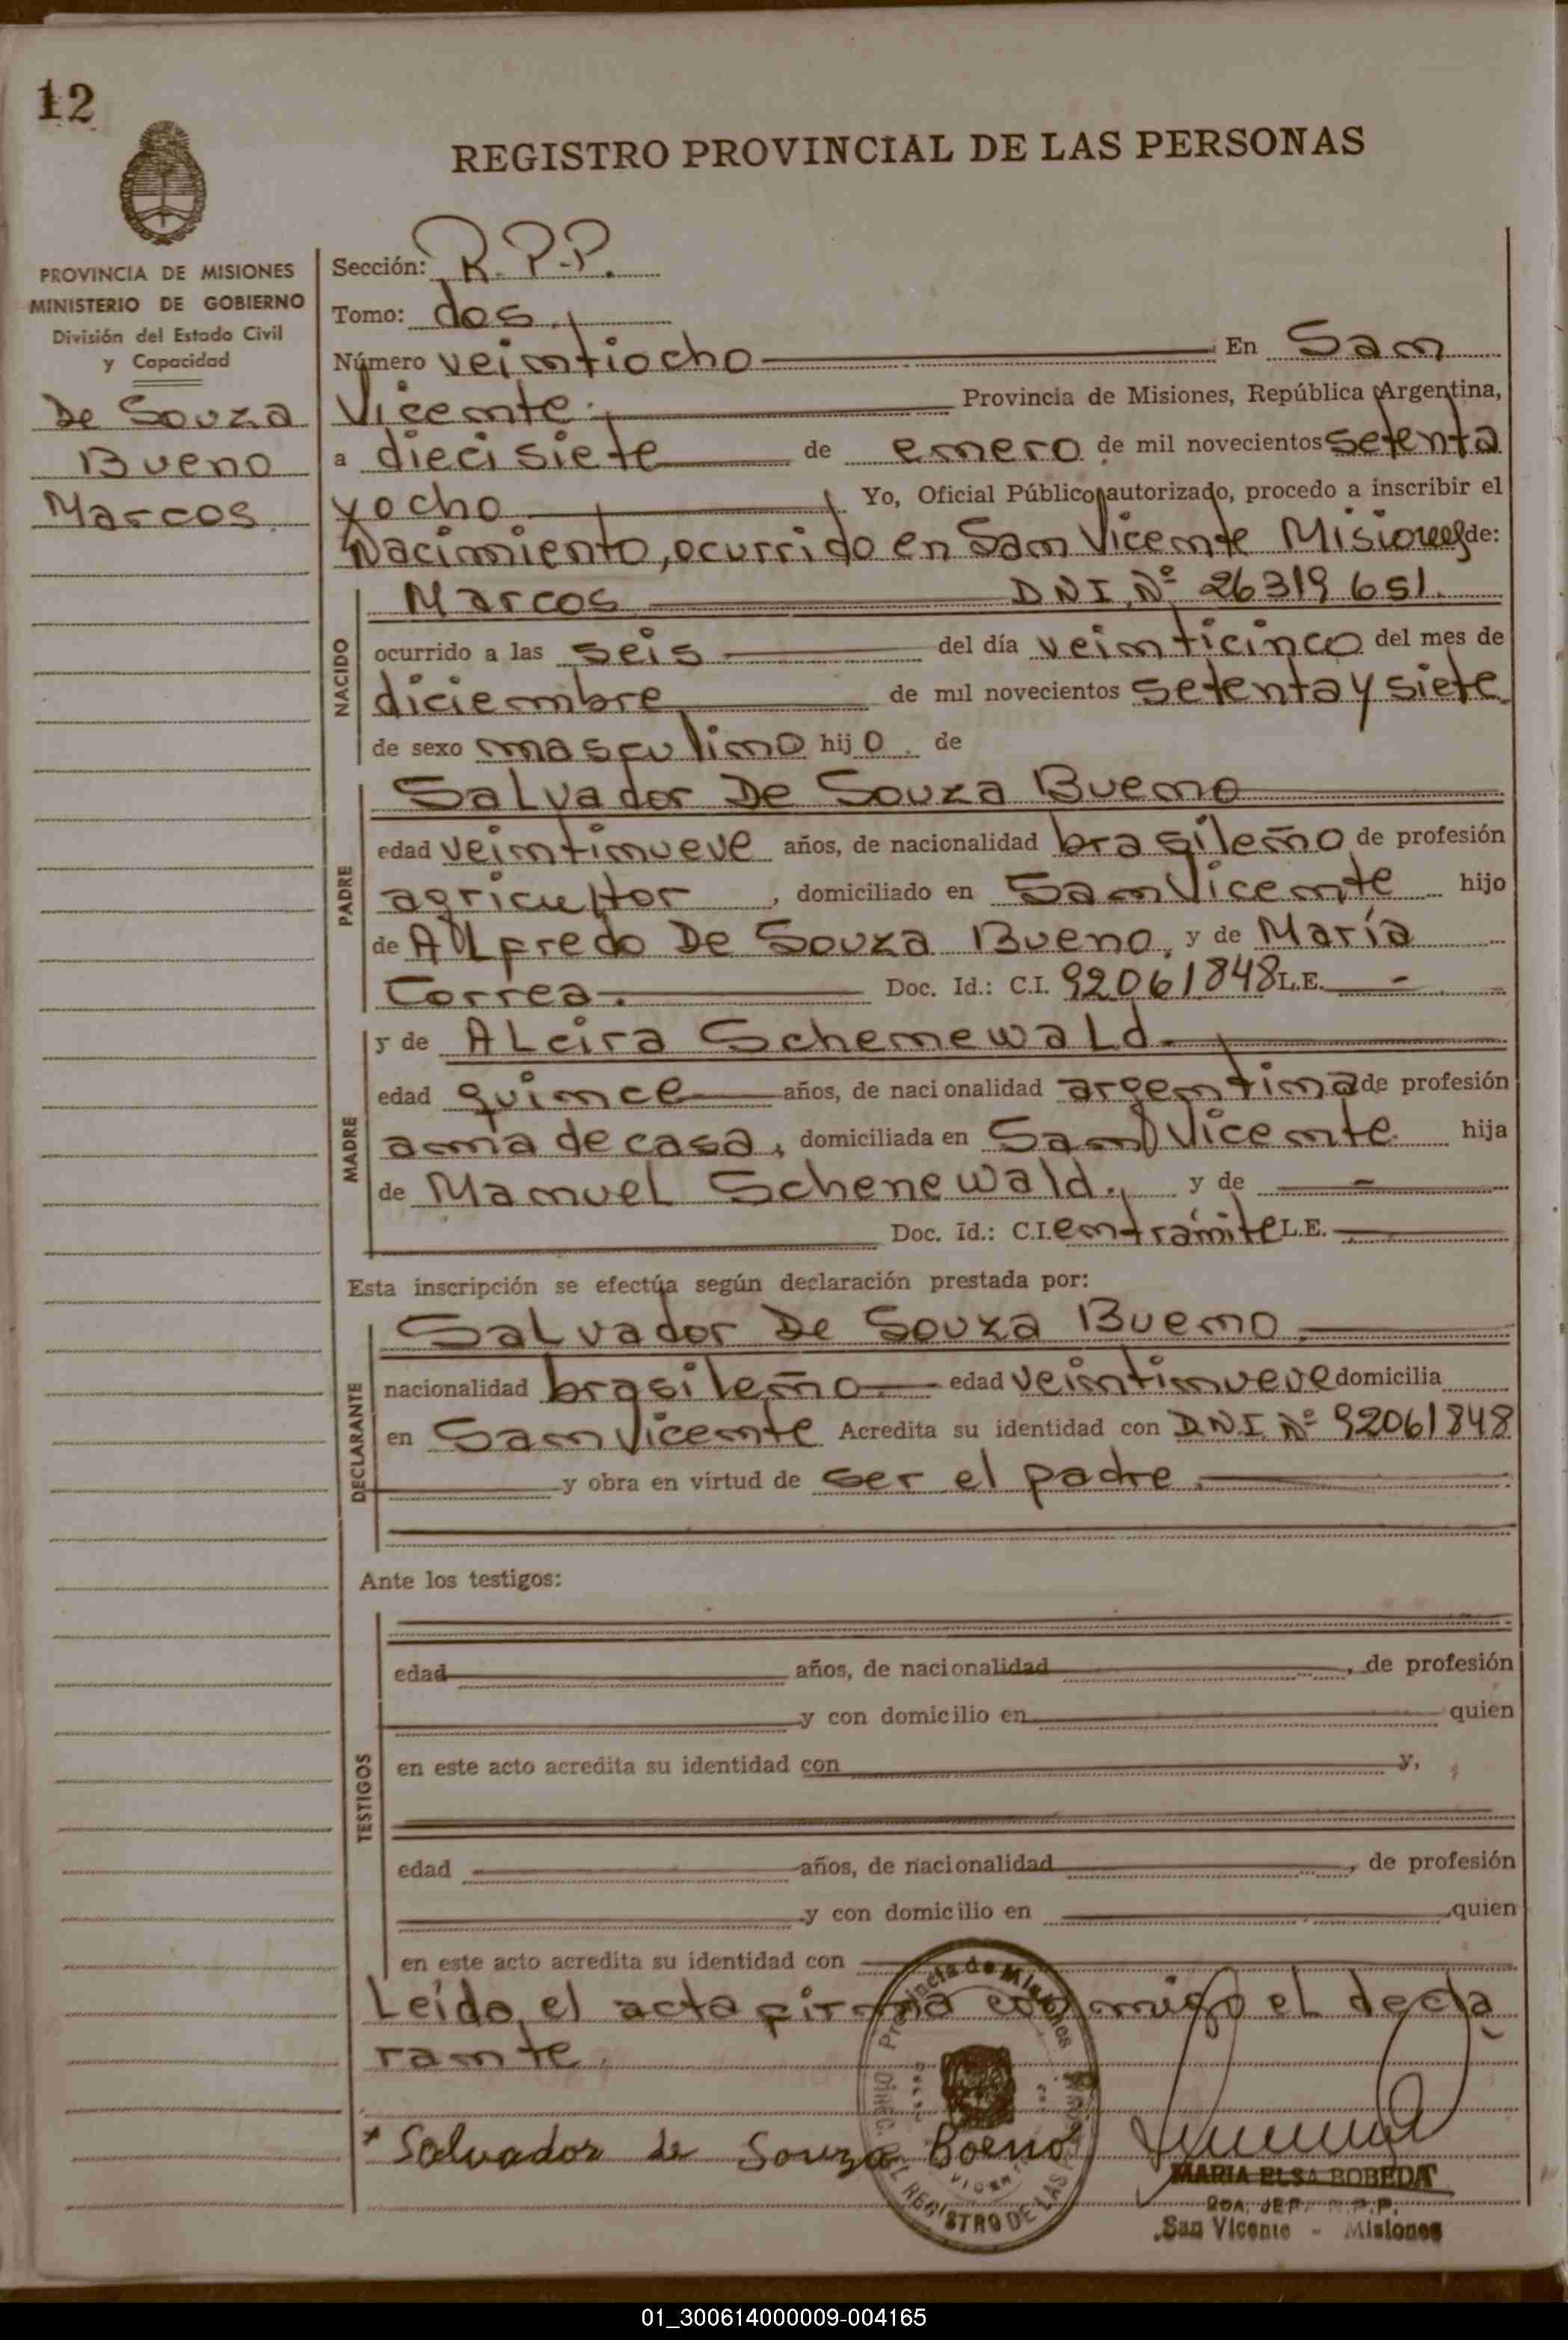 12
REGISTRO PROVINCIAL DE LAS PERSONAS
PROVINCIA DE MISIONES
MINISTERIO DE GOBIERNO
División del Estado Civil
y Capacidad
De Souza
Bueno
Marcos.
Sección: R.P.P.
Tomo: dos.
Número veintiocho En San
Vicente. Provincia de Misiones, República Argentina,
a diecisiete de enero de mil novecientos setenta
y ocho Yo, Oficial Público autorizado, procedo a inscribir el
Nacimiento, ocurrido en San Vicente Misiones de:
NACIDO
Marcos DNI. Nº 26319651.
ocurrido a las seis del día veinticinco del mes de
diciembre de mil novecientos setenta y siete
de sexo masculino hijo. de
PADRE
Salvador De Souza Bueno
edad veintinueve años, de nacionalidad brasileño de profesión
agricultor, domiciliado en San Vicente hijo
de Alfredo De Souza Bueno, y de María
Correa. Doc. Id.: C.I. 92061848 L.E. -
MADRE
y de Alcira Schenewald.
edad quince años, de nacionalidad argentina de profesión
ama de casa, domiciliada en San Vicente hija
de Manuel Schenewald., y de -
Doc. Id.: C.I. en trámite L.E.
Esta inscripción se efectúa según declaración prestada por:
DECLARANTE
Salvador De Souza Bueno.
nacionalidad brasileño edad veintinueve domicilia
en San Vicente Acredita su identidad con D.N.I. Nº 92061848
y obra en virtud de ser el padre.
Ante los testigos:
TESTIGOS
edad años, de nacionalidad, de profesión
y con domicilio en quien
en este acto acredita su identidad con y,
edad años, de nacionalidad, de profesión
y con domicilio en quien
en este acto acredita su identidad con
Leída el acta firma conmigo el decla
rante.
Provincia de Misiones
REGISTRO DE LAS
* Salvador de Souza Boeno
MARIA ELSA BOBEDA
San Vicente - Misiones
01_300614000009-004165